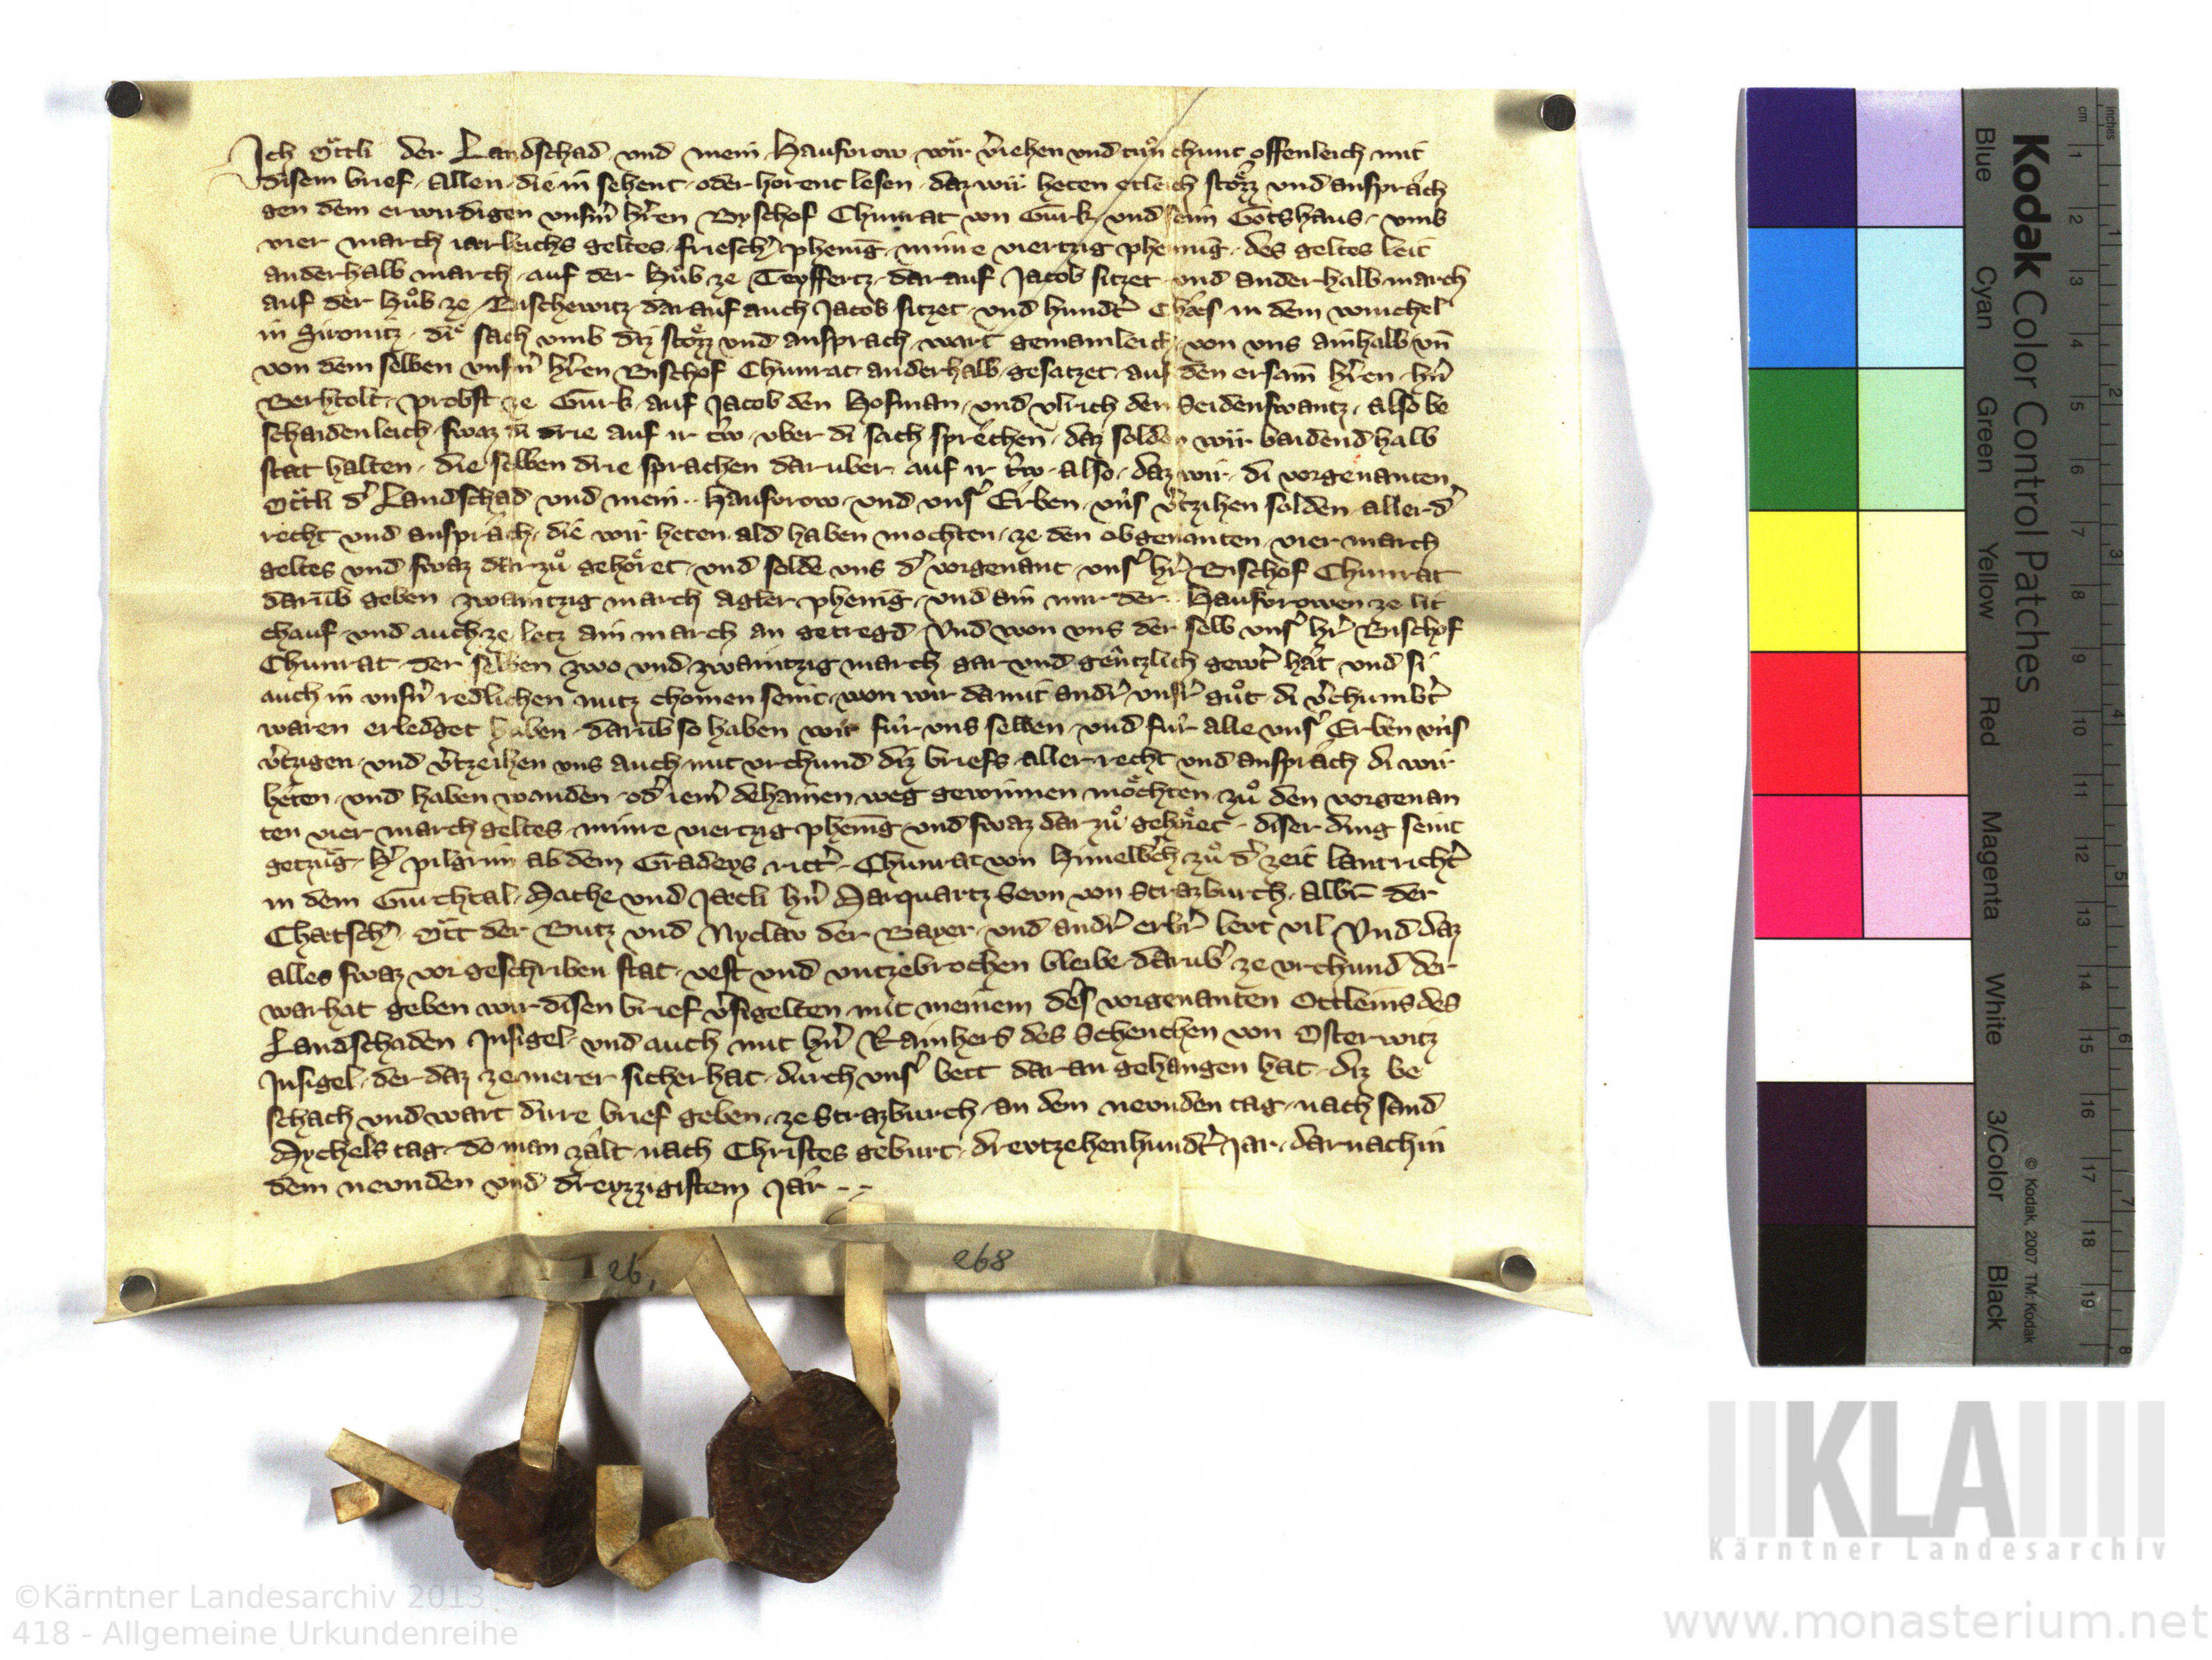 Ich Ottli der Landschad und mein Hausvrow wir v̾iehen und tuͦn chunt offenleich mit
disem brief allen die in sehent oder horent lesen daz wir heten etleich stoͤzz und ansprach
gen dem erwirdigen unsm̾ hr̾en Byschof Chunrat von Gurk und seim Gotshaus umb
vier march iarleichs geltes friesch̾ phenīg minne viertzig phennīg des geltes leit
anderhalb march auf der Huͦb ze Teyffertz darauf Jacob sitzet und anderhalb march
auf der Huͦb ze Buschewitz darauf auch Jacob sitzet und hundt̾ Chaes in dem winchel
in Sironitz die sach umb diz stoͤzz und ansprach wart gemainleich von uns ainhalb uñ
von dem selben unsn̾ hr̾en Bischof Chunrat anderhalb gesatzet auf den ersam̄ hr̾en hn̾
Berhtolt probst ze Gurk auf Jacob den Hofman und Ulrich den Seidenswantz also be
schaidenleich swaz di drie auf ir tr̾w uber di sach sprechen daz solden wir baidend halb
stat halten die selben drie sprachen daruber auf ir tr̾w also daz wir di vorgenanten
Ottli d̾ Landschad und mein Hausvrow und uns̾ Erben uns v̾tzihen solden aller d̾
recht und ansprach die wir heten ald haben mochten ze den obgenanten vier march
geltes und swaz darzuͦ gehoͤret und solde uns d̾ vorgenant uns̾ hr̾ Bischof Chunrat
darūb geben zwaintzig march agler phenīg und ain mir der Hausvrowen ze lit
chauf und auch ze letz ain march an getregd Und won uns der selb uns̾ hr̾ Bischof
Chunrat der selben zwo und zwaintzig march gar und gentzlich gewt̾ hat und si
auch in unsn̾ redlichen nutz chomen seint won wir damit andr̾ unsr̾ guͦt di v̾chumbt̾
waren erledget haben darūb so haben wir fur uns selben und fur alle uns̾ Erben uns
v̾tzigen und v̾tzeihen uns auch mit urchund diz briefs aller recht und ansprach di wir
heten und haben wanden od̾ iem̾ dehainen weg gewinnen moͤchten zuͦ den vorgenan
ten vier march geltes minre viertzig phenīg und swaz darzuͦ gehoͤret diser ding seint
getzuͤg h̾ pilgrim ab dem Gradeys ritt̾ Chunrat von Himelb̾ch zuͦ d̾ zeit lantricht̾
in dem Gurchtal Mathe und Jaecli hn̾ Marquartz Sevn von Strazburch Albr̄ der
Chaetsch̾ Ott der Butz und Nyclav der Bayer und andr̾ erbr̾ levt vil Und daz
alles swaz vor geschriben stat vest und untzebrochen bleibe darub̾ ze urchund der
warhat geben wir disen brief v̾sigelten mit meinem des vorgenanten Ottleins des
Landschaden Insigel und auch mit hn̾ Rainhers des Schenchen von Osterwitz
Insigel der daz ze merer sicherhat durch uns̾ bett daran gehangen hat diz be
schach und wart dirre brief geben ze Strazburch an dem nevnden tag nach sand
Mychels tag do man zalt nach Christes geburt drevtzehenhundt̾ Jar darnach in
dem nevnden und dreyzzigistem Jar
26,
268
Kodak Color Control Patches
Blue Cyan Green Yellow Red Magenta White 3/Color Black
© Kodak, 2007 TM: Kodak
cm 1 2 3 4 5 6 7 8 9 10 11 12 13 14 15 16 17 18 19
inches 1 2 3 4 5 6 7 8
KLA
Kärntner Landesarchiv
©Kärntner Landesarchiv 2013
418 - Allgemeine Urkundenreihe
www.monasterium.net